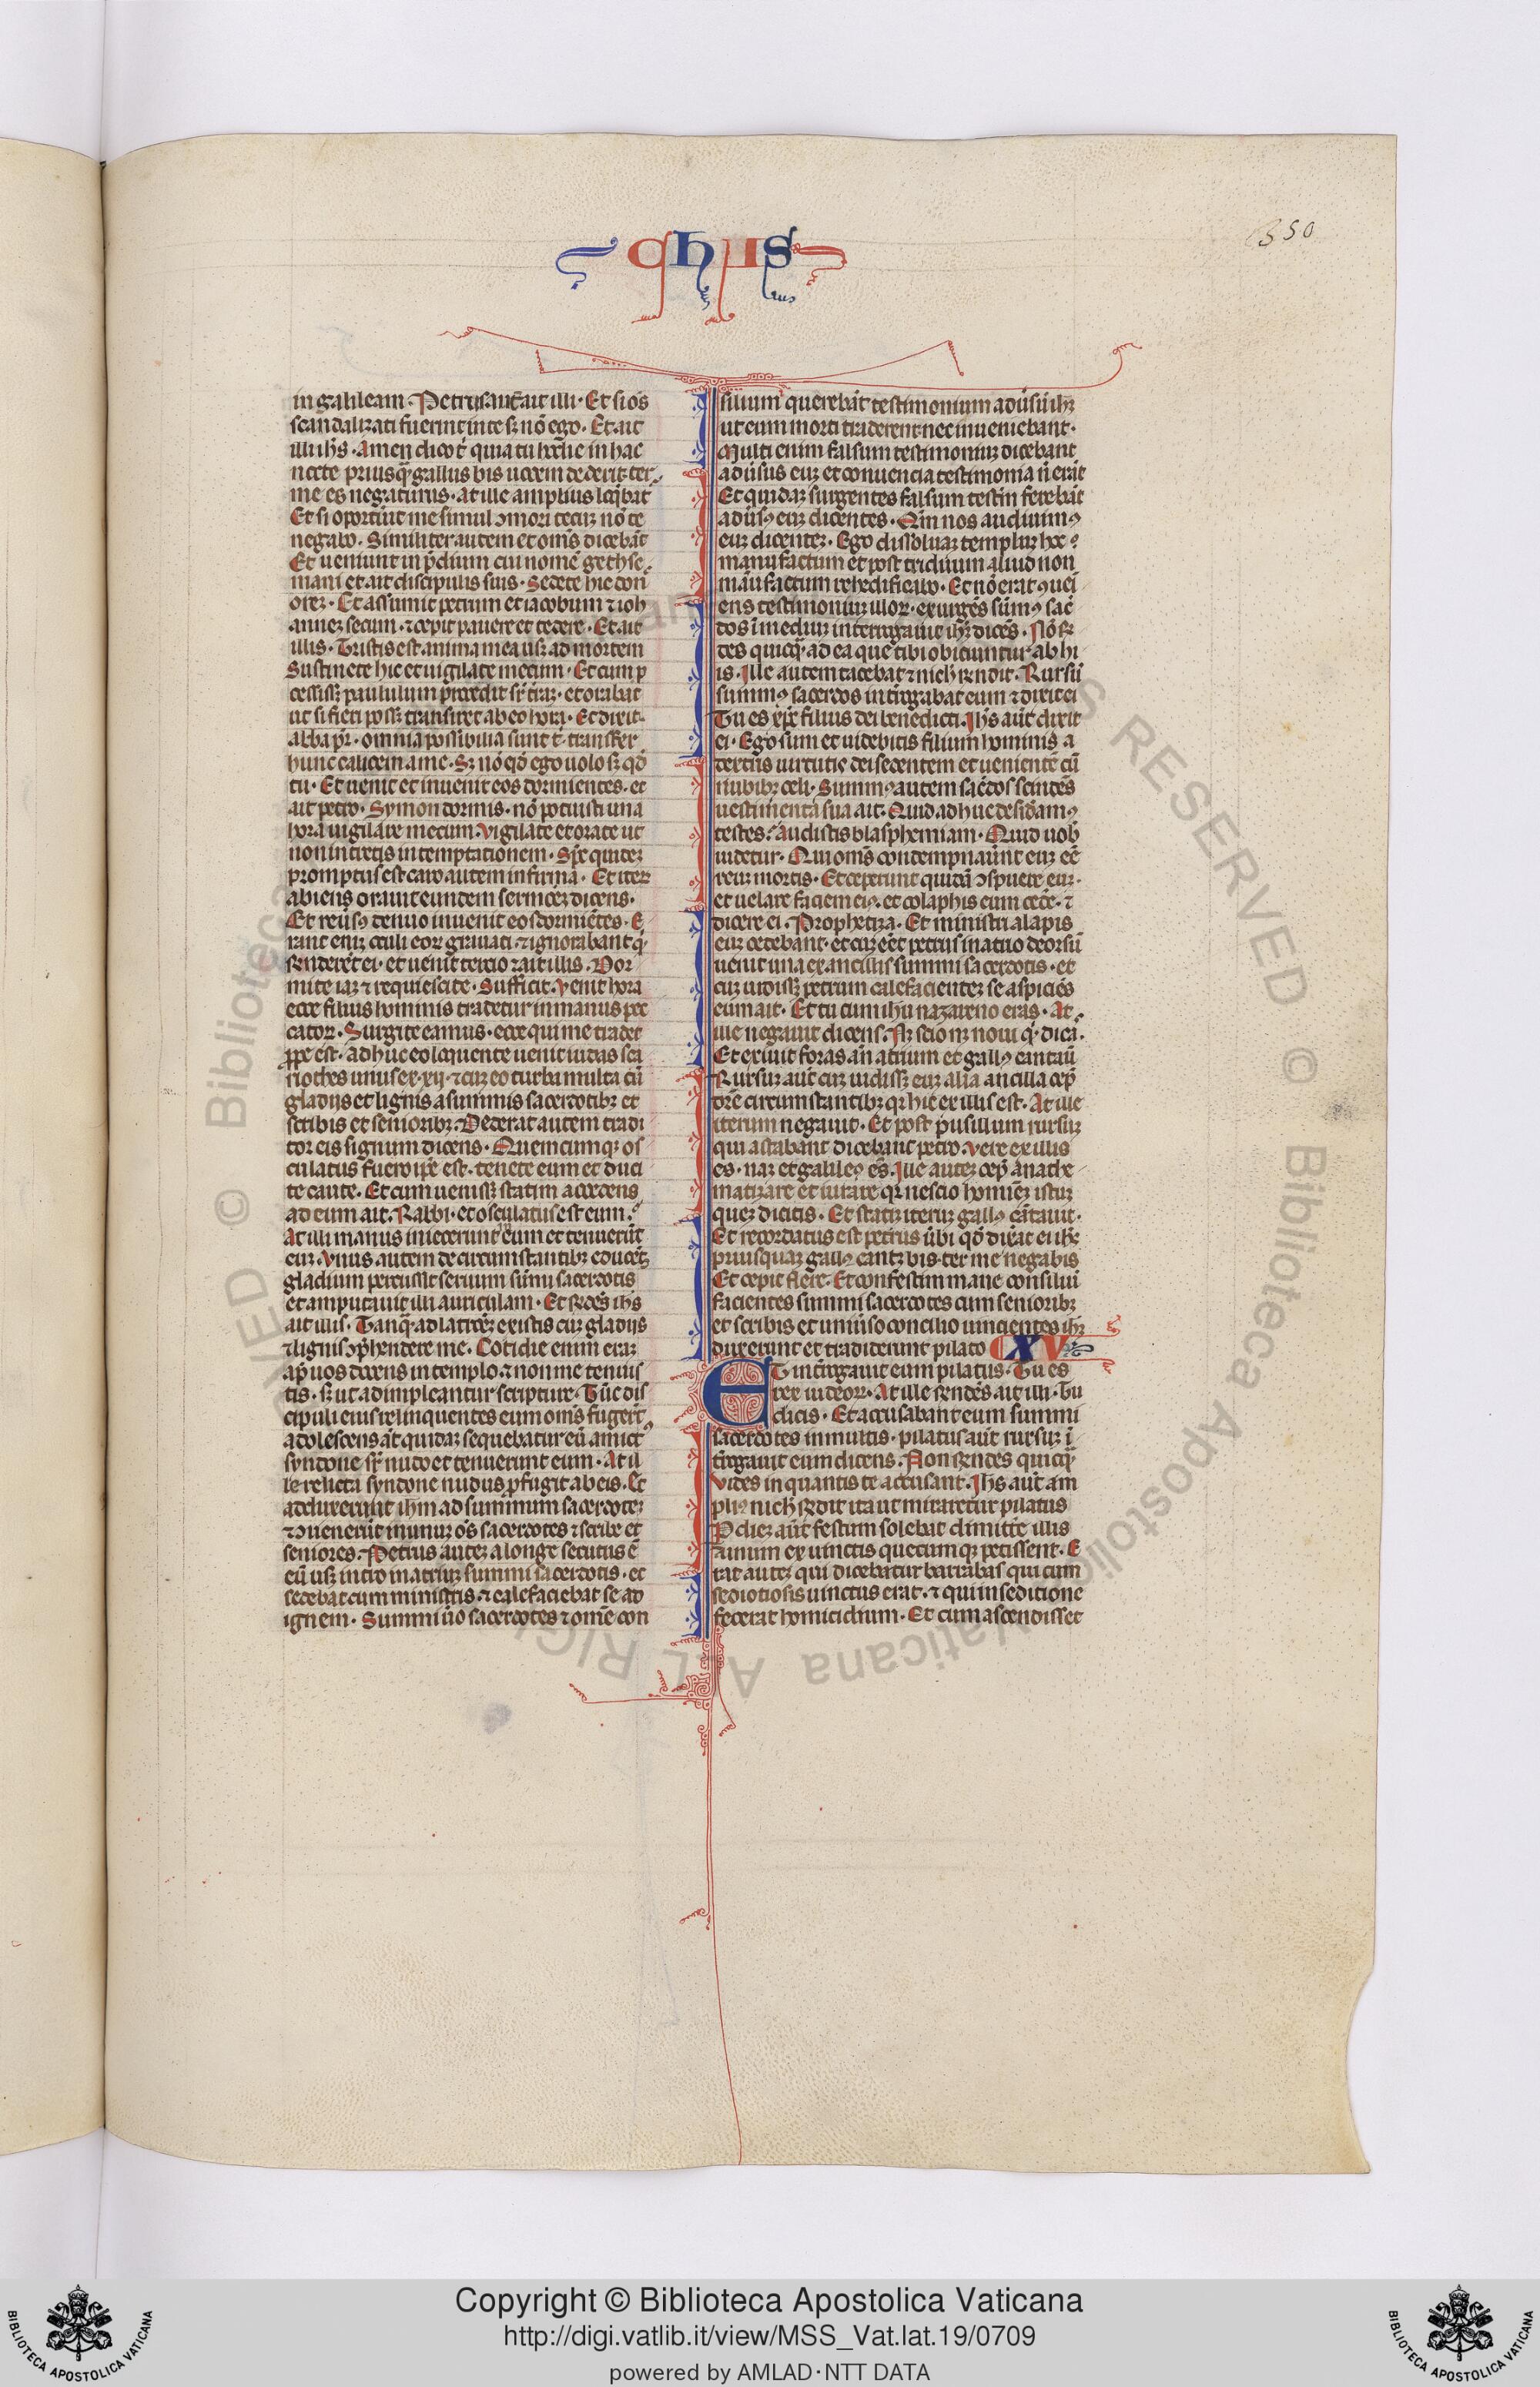 chus
350
in galileam. Petrus aut̄ ait illi. Et si oēs
scandalizati fuerint in te sꝫ nō ego. Et ait
illi ihs̄. Amen dico t̄ quia tu hodie in hac
nocte priusq̄ gallus bis uocem dederit. ter
me es negaturus. At ille amplius loq̄bat̄
Et si oportūit me simul ɔmori tecuꝫ nō te
negabo. Similiter autem et om̄s dicebāt
Et ueniunt in p̄dium cui nomē gethse
mani et ait discipulis suis. Sedete hic don̄
oreꝫ. Et assumit petrum et iacobum ⁊ ioh
anneꝫ secum. ⁊ cepit pauere et tedere. Et ait
illis. Tristis est anima mea usꝫ ad mortem
Sustinete hic et uigilate mecum. Et cum p
cessissꝫ paululum procedit sr̄ t̄raꝫ. et orabat
ut si fieri possꝫ transiret ab eo hora. Et dixit.
abba pr̄. omnia possibilia sunt t̄. transfer
hunc calicem a me. Sꝫ nō qō ego uolo sꝫ qō
tu. Et uenit et inuenit eos dormientes. et
ait petro. Symon dormis. nō potuisti una
hora uigilare mecum. Vigilate et orate ut
non intretis in temptationem. Sp̄c quideꝫ
promptus est caro autem infirma. Et iterꝫ
abiens orauit eundem sermoneꝫ dicens.
Et reūsꝰ denuo inuenit eos dormiētes. E
rant eniꝫ oculi eoꝝ grauati. ⁊ ignorabant q̄
rn̄derēt ei. et uenit tercio ⁊ ait illis. Dor
mite iaꝫ ⁊ requiescite. Sufficit. Venit hora
ecce filius hominis tradetur in manus pec
catoꝝ. Surgite eamus. ecce qui me tradet
ꝓpe est. adhuc eo loquente uenit iudas sca
riothes unus ex. xij. ⁊ cuꝫ eo turba multa cū
gladijs et lignis a summis sacerdotibꝫ et
scribis et senioribꝫ. Dederat autem tradi
tor eis signum dicens. Quemcumqꝫ os
culatus fuero ip̄e est. tenete eum et duci
te caute. Et cum uenissꝫ statim accedens
ad eum ait. Rabbi. et osculatus est eum.
At illi manus iniecerunt eum et tenuerūt
euꝫ. Vnus autem de circumstantibꝫ educēs
gladium percussit seruum sūmi sacerdotis
et amputauit illi auriculam. Et rn̄des ihs̄
ait illis. Tanq̄ ad latroneꝫ existis cuꝫ gladijs
⁊ lignis ɔp̄hendere me. Cotidie enim eraꝫ
apᷣ uos docens in templo. ⁊ non me tenuis
tis. sꝫ ut adimpleantur scripture. Tūc dis
cipuli eius relinquentes eum om̄s fugerūt
adolescens aūt quidaꝫ sequebatur eū amictꝰ
syndone sr̄ nudo et tenuerunt eum. At il
le relicta syndone nudus ꝓfugit ab eis. Et
adduxerunt ihm̄ ad summum sacerdoteꝫ
⁊ ɔuenerūt in unuꝫ oēs sacerdotes ⁊ scribe et
seniores. Petrus auteꝫ a longe secutus ē
eū usꝫ intro in atriuꝫ summi sacerdotis. et
sedebat cum ministris. ⁊ calefaciebat se ad
ignem. Summi ūo sacerdotes ⁊ omē con
silium querebāt testimonium adūsū ihꝫ
ut eum morti traderent. nec inueniebant.
Multi enim falsum testimoniuꝫ dicebant
adūsus euꝫ et conuencia testimonia n̄ erāt
Et quidaꝫ surgentes falsum testim̄ ferebāt
adūsꝰ euꝫ dicentes. Qm̄ nos audiuimꝰ
euꝫ dicenteꝫ. Ego dissoluaꝫ templuꝫ hoc
manu factum et post triduum aliud non
manu factum rehedificabo. Et nō erat ɔueī
ens testimoniuꝫ illoꝝ. exurgēs sūmꝰ sac̄
dos ī mediuꝫ interrogauit ihꝫ dicēs. Nō rn̄
des quicq̄ ad ea que tibi obiciuntur ab hi
is. Ille autem tacebat ⁊ nich̄ rn̄dit. Rursū
summꝰ sacerdos int̄rogabat eum ⁊ dixit ei
Tu es xp̄c filius dei benedicti. Ihs̄ aūt dixit
ei. Ego sum et uidebitis filium hominis a
dextris uirtutis dei sedentem et uenientē cū
nubibꝫ celi. Summꝰ autem sac̄dos scindēs
uestimenta sua ait. Quid adhuc desid̄amꝰ
testes. audistis blasphemiam. Quid uob̄
uidetur. Qui om̄s condempnauerūt euꝫ eē
reuꝫ mortis. Et ceperunt quidā ɔspuere euꝫ.
et uelare faciem eiꝰ. et colaphis eum cedē. ⁊
dicere ei. Prophetiza. Et ministri alapis
euꝫ cedebant. et cuꝫ eēt petrus in atrio deorsū
uenit una ex ancillis summi sacerdotis. et
cuꝫ uidissꝫ petrum calefacienteꝫ se aspiciēs
eum ait. Et tu cum ihū nazareno eras. At
ille negauit dicens. Nꝫ scio nꝫ noui q̄ dicā.
Et exiuit foras an̄ atrium et gallꝰ cantauī
Rursuꝫ aūt cuꝫ uidissꝫ euꝫ alia ancilla cep̄
dic̄e circumstantibꝫ qꝛ hic ex illis est. At ille
iterum negauit. Et post pusillum rursuꝫ
qui astabant dicebant petro. Vere ex illis
es. naꝫ et galileꝰ es. Ille auteꝫ cep̄ anathe
matizare et iurare qꝛ nescio homīeꝫ istuꝫ
queꝫ dicitis. Et statiꝫ iteruꝫ gallꝰ cātauit.
Et recordatus est petrus ūbi qō dixat ei ihꝫ
priusquaꝫ gallꝰ cantꝫ bis. ter me negabis
Et cepit flere. Et confestim mane consiliū
facientes summi sacerdotes cum senioribꝫ
et scribis et uniūso concilio uincientes ihꝫ
duxerunt et tradiderunt pilato CXV
ET int̄rogauit eum pilatus. Tu es
rex iudeoꝝ. At ille rn̄dēs ait illi. Tu
dicis. Et accusabant eum summi
sacerdotes in multis. pilatus aūt rursuꝫ ī
t̄rogauit eum dicens. Non rn̄des quicq̄
Vides in quantis te accusant. Ihs̄ aūt am
pliꝰ nich̄ rn̄dit ita ut miraretur pilatus
P dieꝫ aūt festum solebat dimittē illis
unum ex uinctis quecumqꝫ petissent. E
rat auteꝫ qui dicebatur barrabas qui cum
sediotiosis uinctus erat. ⁊ qui in seditione
fecerat homicidium. Et cum ascendisset
Copyright © Biblioteca Apostolica Vaticana
http://digi.vatlib.it/view/MSS_Vat.lat.19/0709
powered by AMLAD·NTT DATA